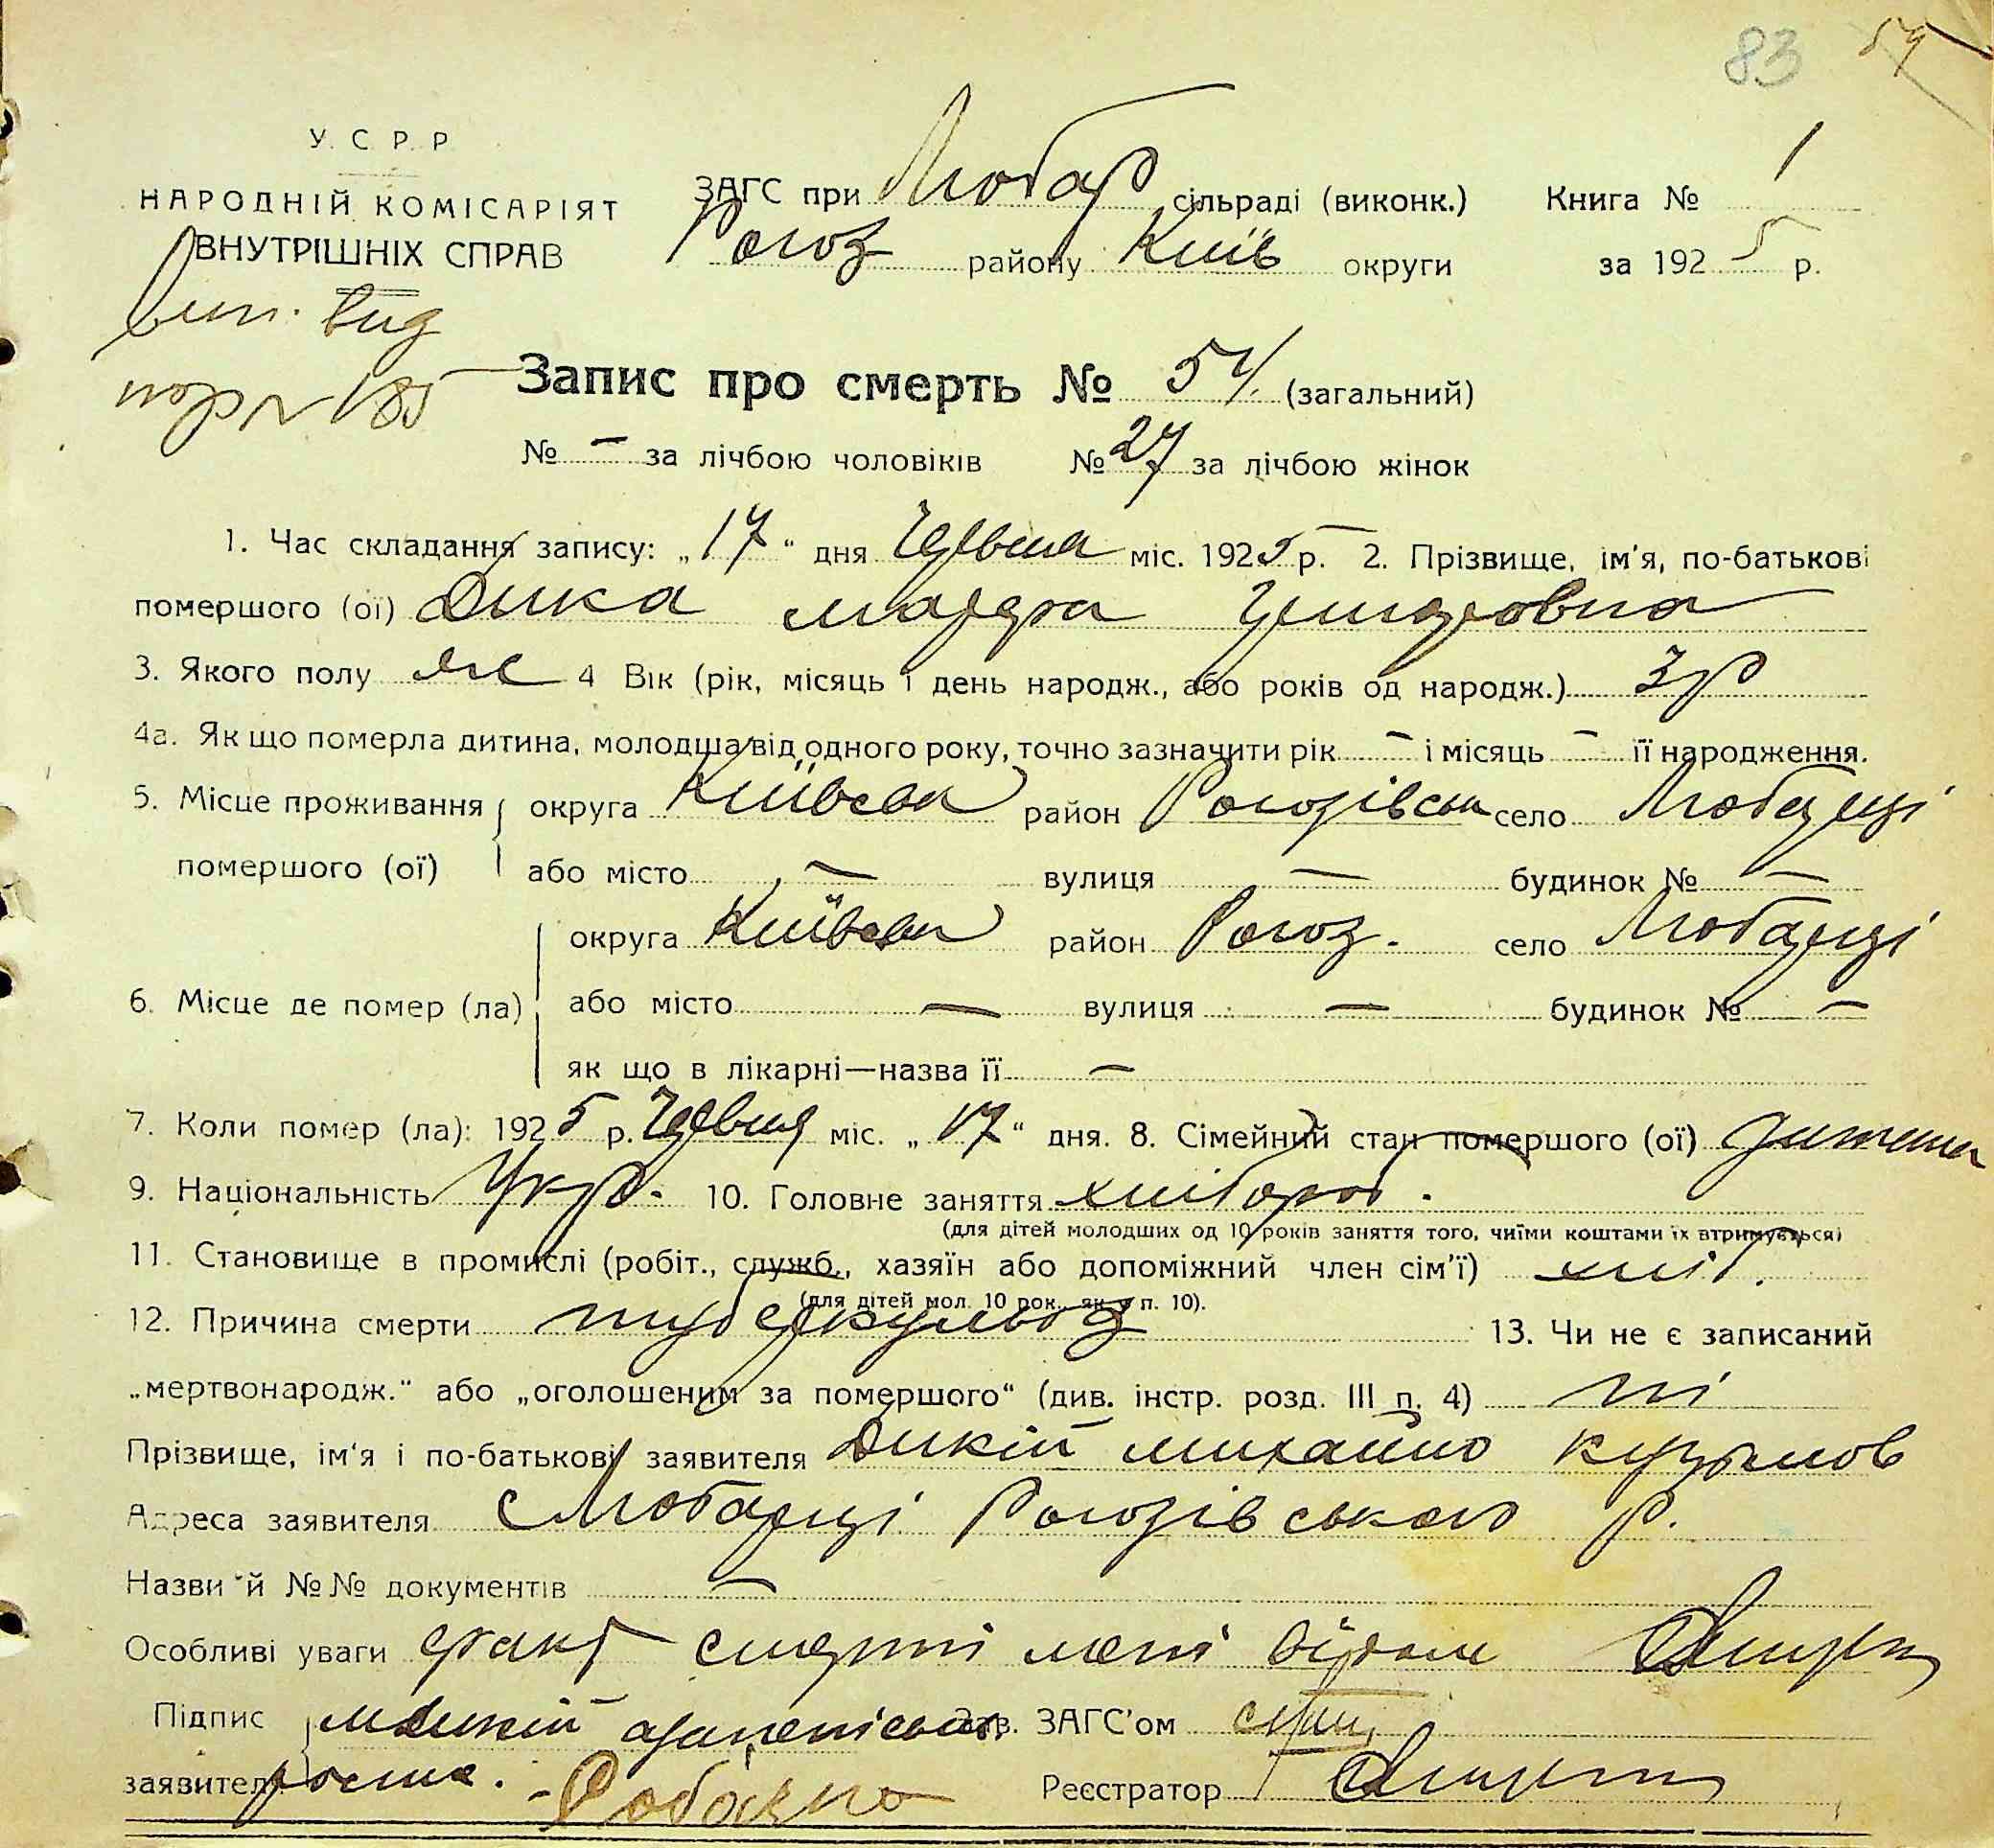 83 54
У. С. Р. Р
НАРОДНІЙ КОМІСАРІЯТ
ВНУТРІШНІХ СПРАВ
ЗАГС при Любар сільраді (виконк.) Книга № 1
Рогоз району Київ округи за 1925 р.
Запис про смерть № 54 (загальний)
№ – за лічбою чоловіків № 27 за лічбою жінок
1. Час складання запису: „17“ дня Червня міс. 1925 р. 2. Прізвище, ім'я, по-батькові
помершого (ої) Дика
3. Якого полу ж 4 Вік (рік, місяць і день народж., або років од народж.) 3 р
4а. Як що померла дитина, молодша від одного року, точно зазначити рік – і місяць – її народження.
5. Місце проживання округа Київська район Рогозівськ село Любарці
помершого (ої) або місто – вулиця – будинок № –
округа Київська район Рогоз. село Любарці
6. Місце де помер (ла) або місто – вулиця – будинок № –
як що в лікарні—назва її –
7. Коли помер (ла): 1925 р. Червня міс. „17“ дня. 8. Сімейний стан помершого (ої) дитина
9. Національність Укр. 10. Головне заняття хлібороб.
(для дітей молодших од 10 років заняття того, чиїми коштами їх втримується)
11. Становище в промислі (робіт., служб., хазяїн або допоміжний член сім'ї) хліб.
(для дітей мол. 10 рок., як в п. 10).
12. Причина смерти туберкульоз 13. Чи не є записаний
„мертвонародж.“ або „оголошеним за помершого“ (див. інстр. розд. III п. 4) ні
Прізвище, ім'я і по-батькові заявителя Дикій Михайло Кузьмов
Адреса заявителя с Любарці Рогозівського р.
Назви й №№ документів –
Особливі уваги факт смерті мені відоме
Підпис МДикій Зав. ЗАГС'ом
заявителя Реєстратор